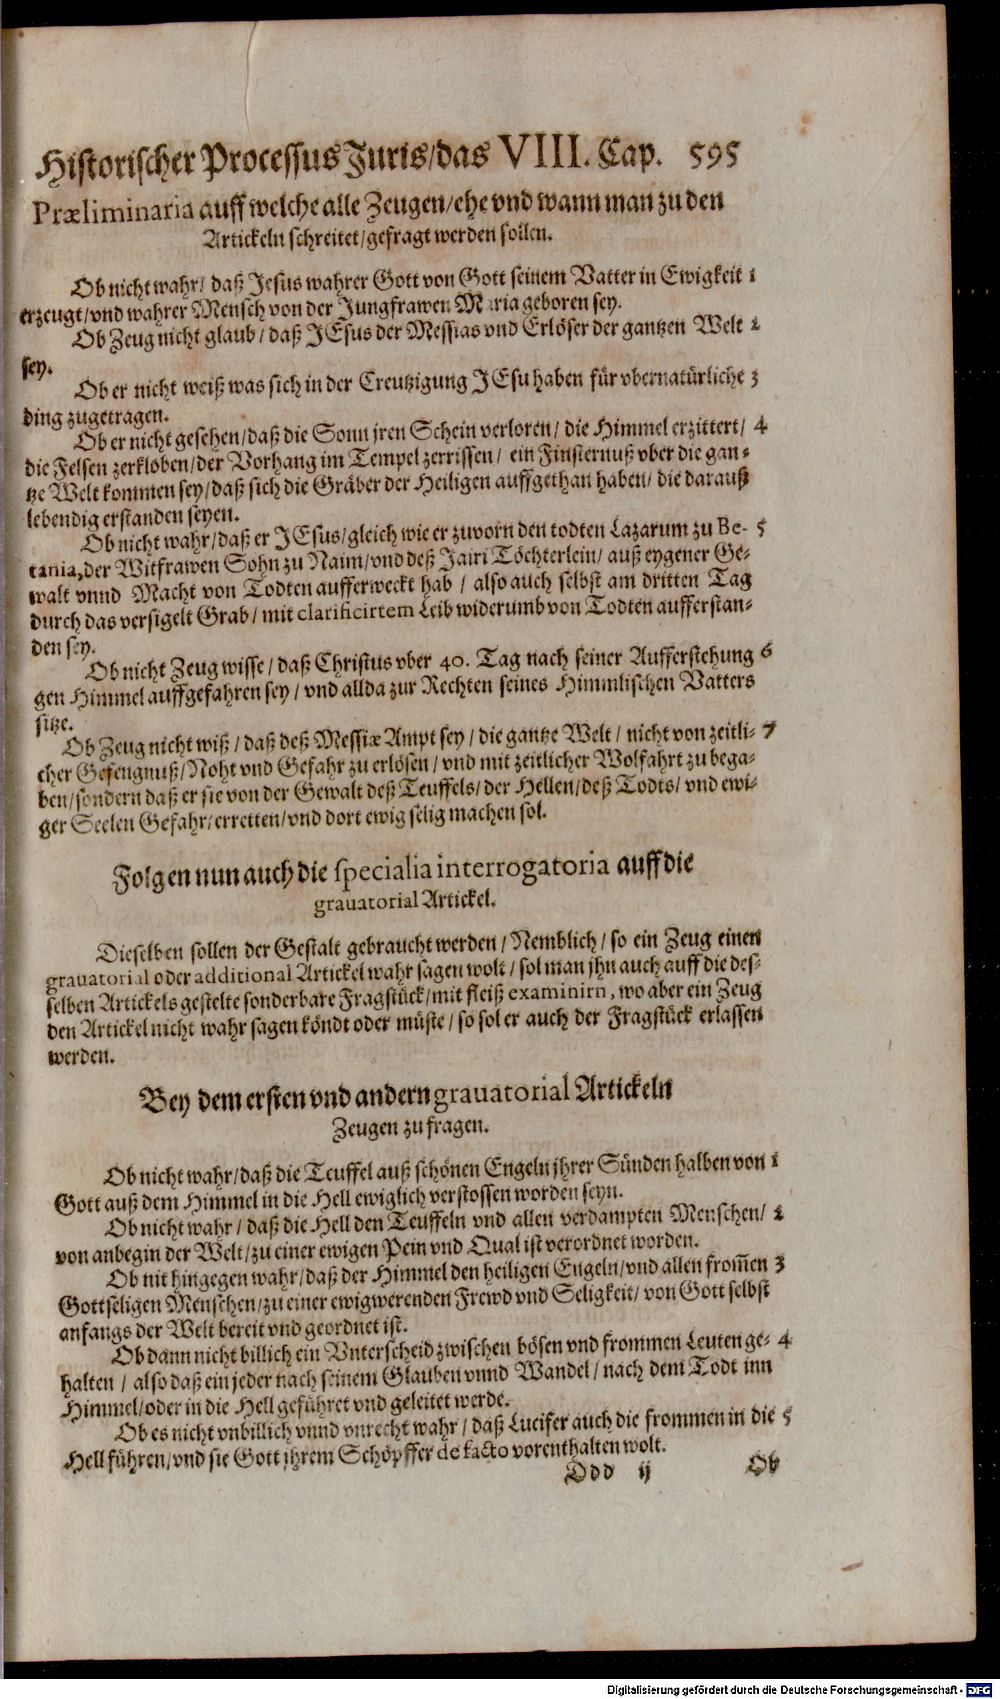 Historischer Processus Juris/das VIII. Cap. 595
Præliminaria auff welche alle Zeugen/ehe vnd wann man zu den
Artickeln schreitet/gefragt werden sollen.
Ob nicht wahr/ daß Jesus wahrer Gott von Gott seinem Vatter in Ewigkeit 1
erzeugt/vnd wahrer Mensch von der Jungfrawen Maria geboren sey.
Ob Zeug nicht glaub/ daß JEsus der Messias vnd Erlöser der gantzen Welt 2
sey.
Ob er nicht weiß was sich in der Creutzigung JEsu haben für vbernatürliche 3
ding zugetragen.
Ob er nicht gesehen/daß die Sonn jren Schein verloren/ die Himmel erzittert/ 4
die Felsen zerkloben/der Vorhang im Tempel zerrissen/ ein Finsternuß vber die gan-
tze Welt kommen sey/daß sich die Gräber der Heiligen auffgethan haben/ die darauß
lebendig erstanden seyen.
Ob nicht wahr/daß er JEsus/gleich wie er zuvorn den todten Lazarum zu Be- 5
tania, der Witfrawen Sohn zu Naim/vnd deß Jairi Töchterlein/ auß eygener Ge-
walt vnnd Macht von Todten aufferweckt hab / also auch selbst am dritten Tag
durch das versigelt Grab/ mit clarificirtem Leib widerumb von Todten aufferstan-
den sey.
Ob nicht Zeug wisse/ daß Christus vber 40. Tag nach seiner Aufferstehung 6
gen Himmel auffgefahren sey / vnd allda zur Rechten seines Himmlischen Vatters
sitze.
Ob Zeug nicht wiß / daß deß Messiæ Ampt sey / die gantze Welt / nicht von zeitli- 7
cher Gefengnuß/Noht vnd Gefahr zu erlösen/ vnd mit zeitlicher Wolfahrt zu bega-
ben/sondern daß er sie von der Gewalt deß Teuffels/ der Hellen/deß Todts/ vnd ewi-
ger Seelen Gefahr/erretten/vnd dort ewig selig machen sol.
Folgen nun auch die specialia interrogatoria auff die
grauatorial Artickel.
Dieselben sollen der Gestalt gebraucht werden/ Nemblich/ so ein Zeug einen
grauatorial oder additional Artickel wahr sagen wolt / sol man jhn auch auff die des-
selben Artickels gestelte sonderbare Fragstück/mit fleiß examinirn, wo aber ein Zeug
den Artickel nicht wahr sagen köndt oder müste / so sol er auch der Fragstück erlassen
werden.
Bey dem ersten vnd andern grauatorial Artickeln
Zeugen zu fragen.
Ob nicht wahr/daß die Teuffel auß schönen Engeln jhrer Sünden halben von 1
Gott auß dem Himmel in die Hell ewiglich verstossen worden seyn.
Ob nicht wahr / daß die Hell den Teuffeln vnd allen verdampten Menschen/ 2
von anbegin der Welt/zu einer ewigen Pein vnd Qual ist verordnet worden.
Ob nit hingegen wahr/daß der Himmel den heiligen Engeln/vnd allen from̃en 3
Gottseligen Menschen/zu einer ewigwerenden Frewd vnd Seligkeit/ von Gott selbst
anfangs der Welt bereit vnd geordnet ist.
Ob dann nicht billich ein Vnterscheid zwischen bösen vnd frommen Leuten ge- 4
halten / also daß ein jeder nach seinem Glauben vnnd Wandel / nach dem Todt inn
Himmel/oder in die Hell geführet vnd geleitet werde.
Ob es nicht vnbillich vnnd vnrecht wahr / daß Lucifer auch die frommen in die 5
Hell führen/vnd sie Gott jhrem Schöpffer de facto vorenthalten wolt.
Ddd ij Ob
Digitalisierung gefördert durch die Deutsche Forschungsgemeinschaft - DFG